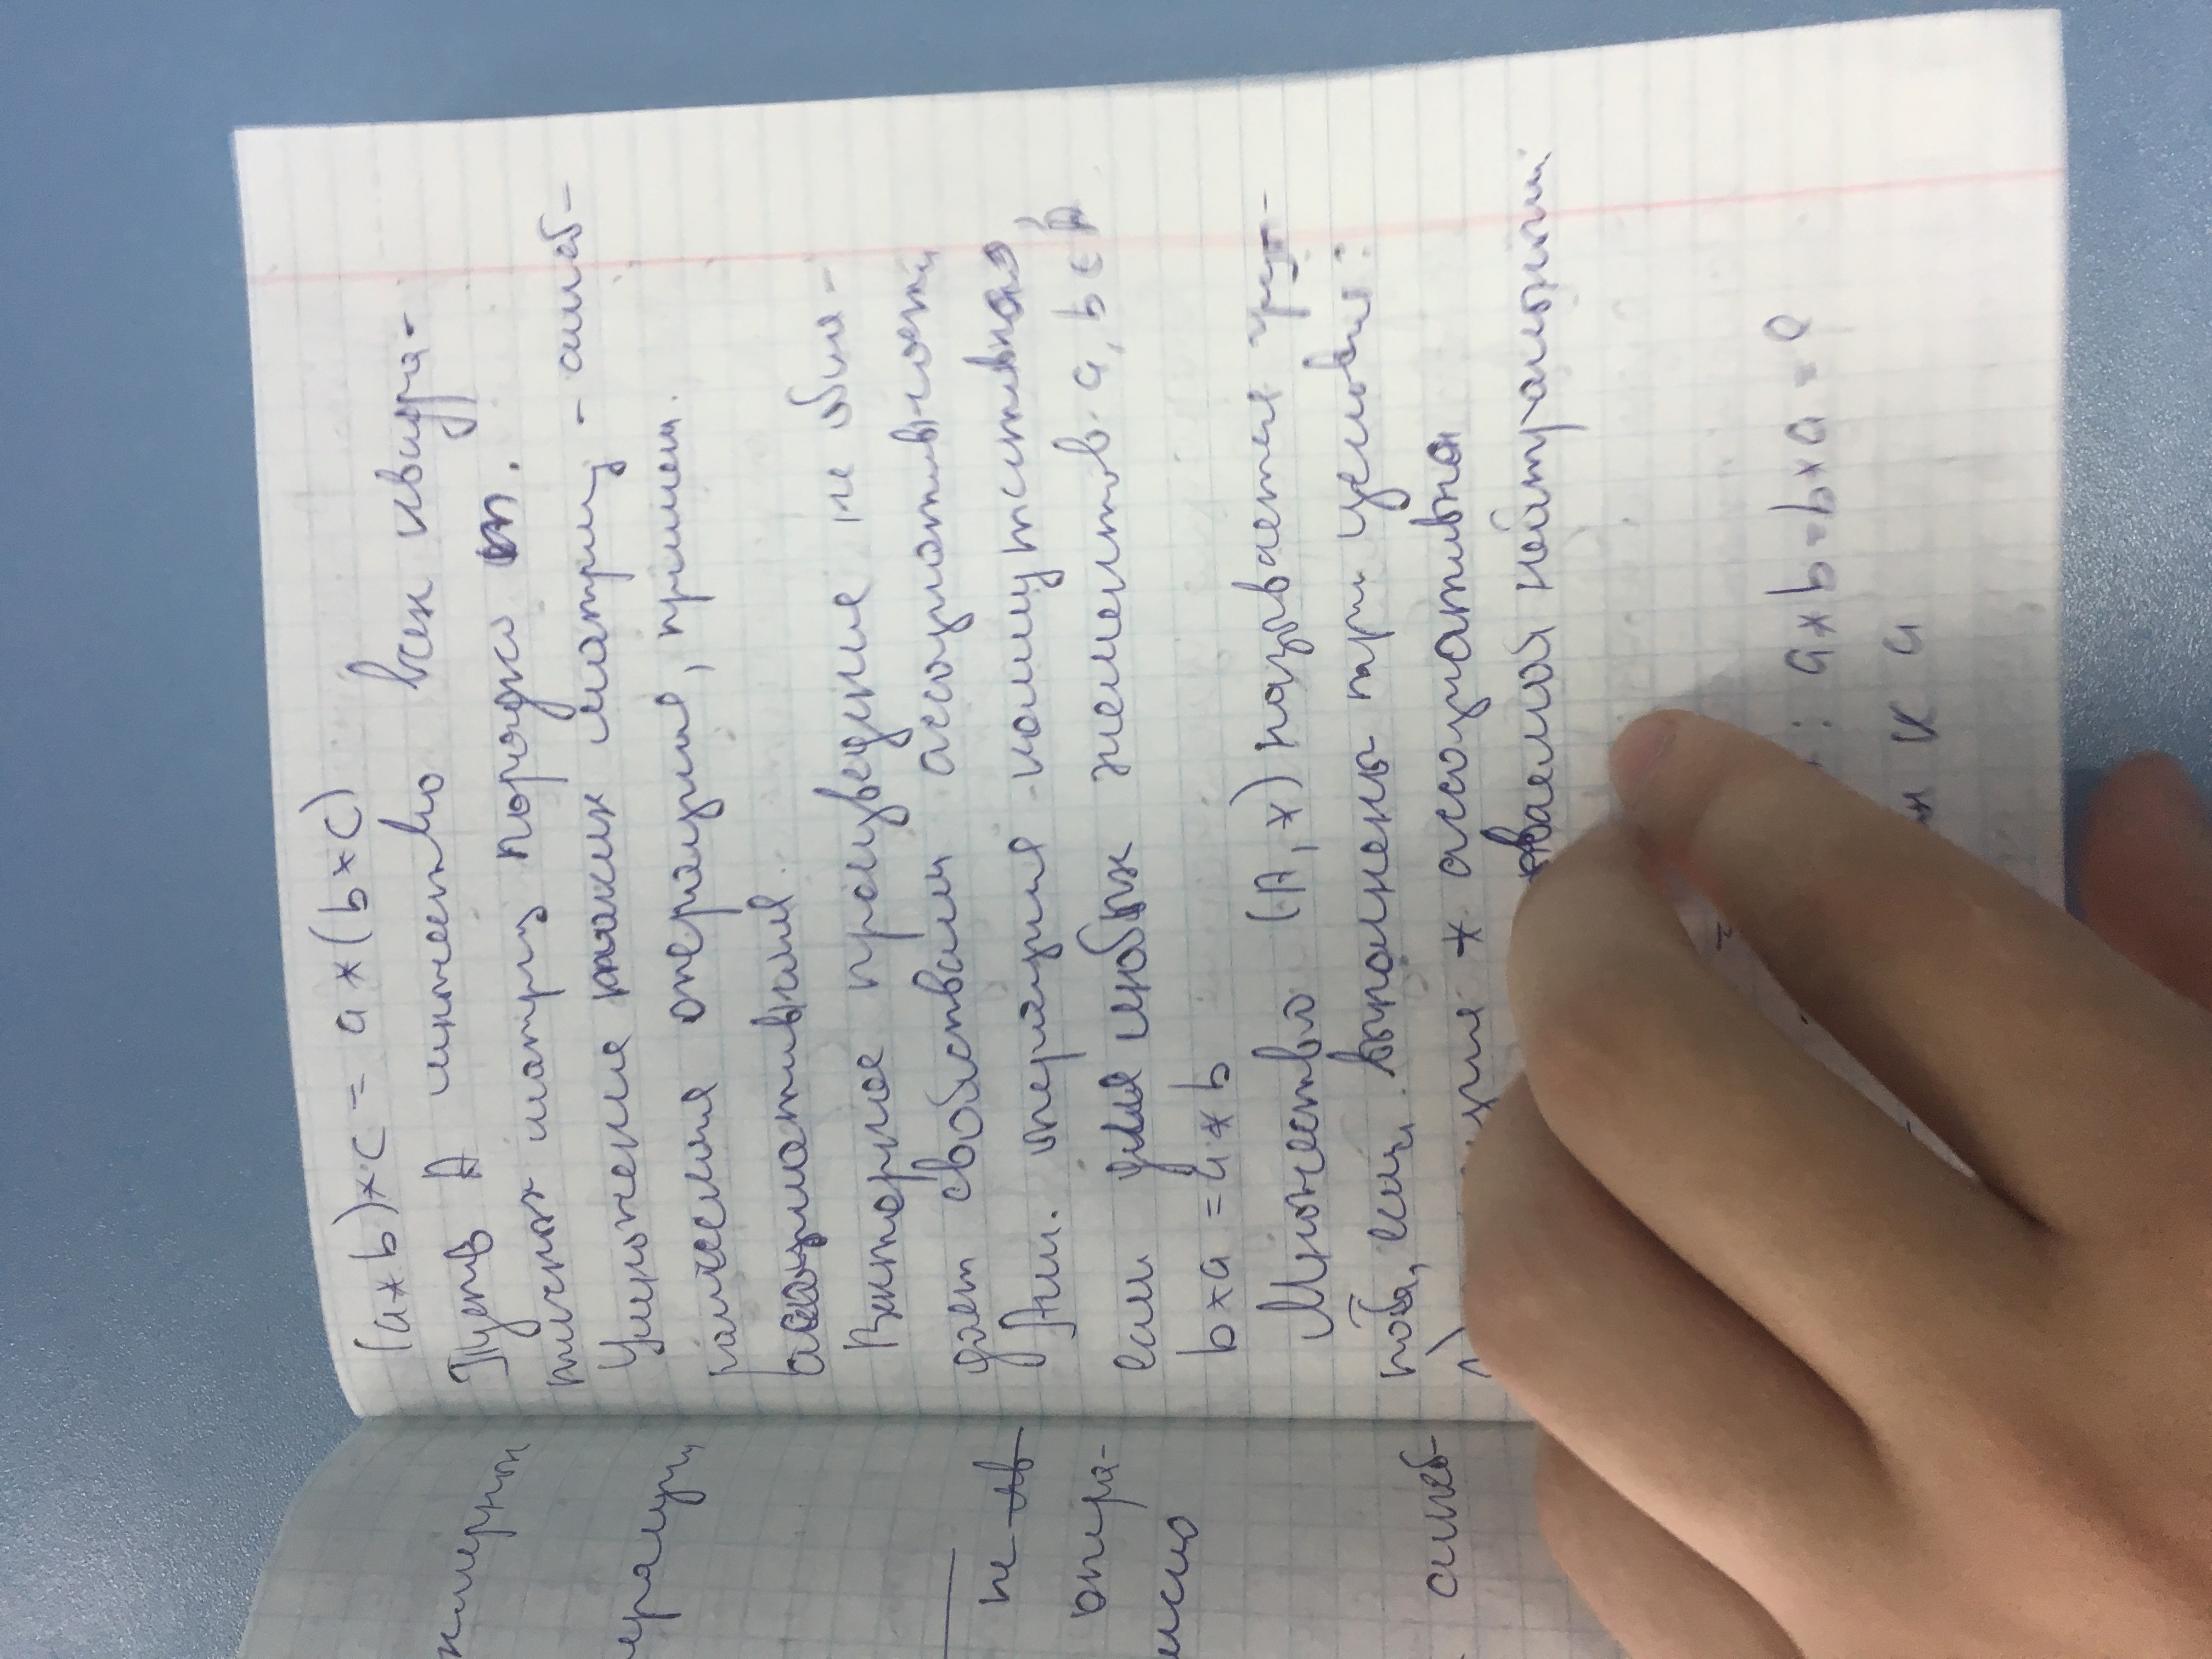 (a * b) * c = a * (b * c)
Пусть A множество всех квадра-
тичных матриц порядка m.
Умножение таких матриц - алгеб-
раическая операция, причем
ассоциативная.
Векторное произведение не обла-
дает свойствами ассоциативности
Алг. операция коммутативная,
если для любых элементов a, b ∈ A
b * a = a * b
Множество (A, *) называется груп-
пой, если выполнены три условия:
1) * ассоциативна
нейтральным
: a * b = b * a = e
к a
не яв
опера-
алгеб-